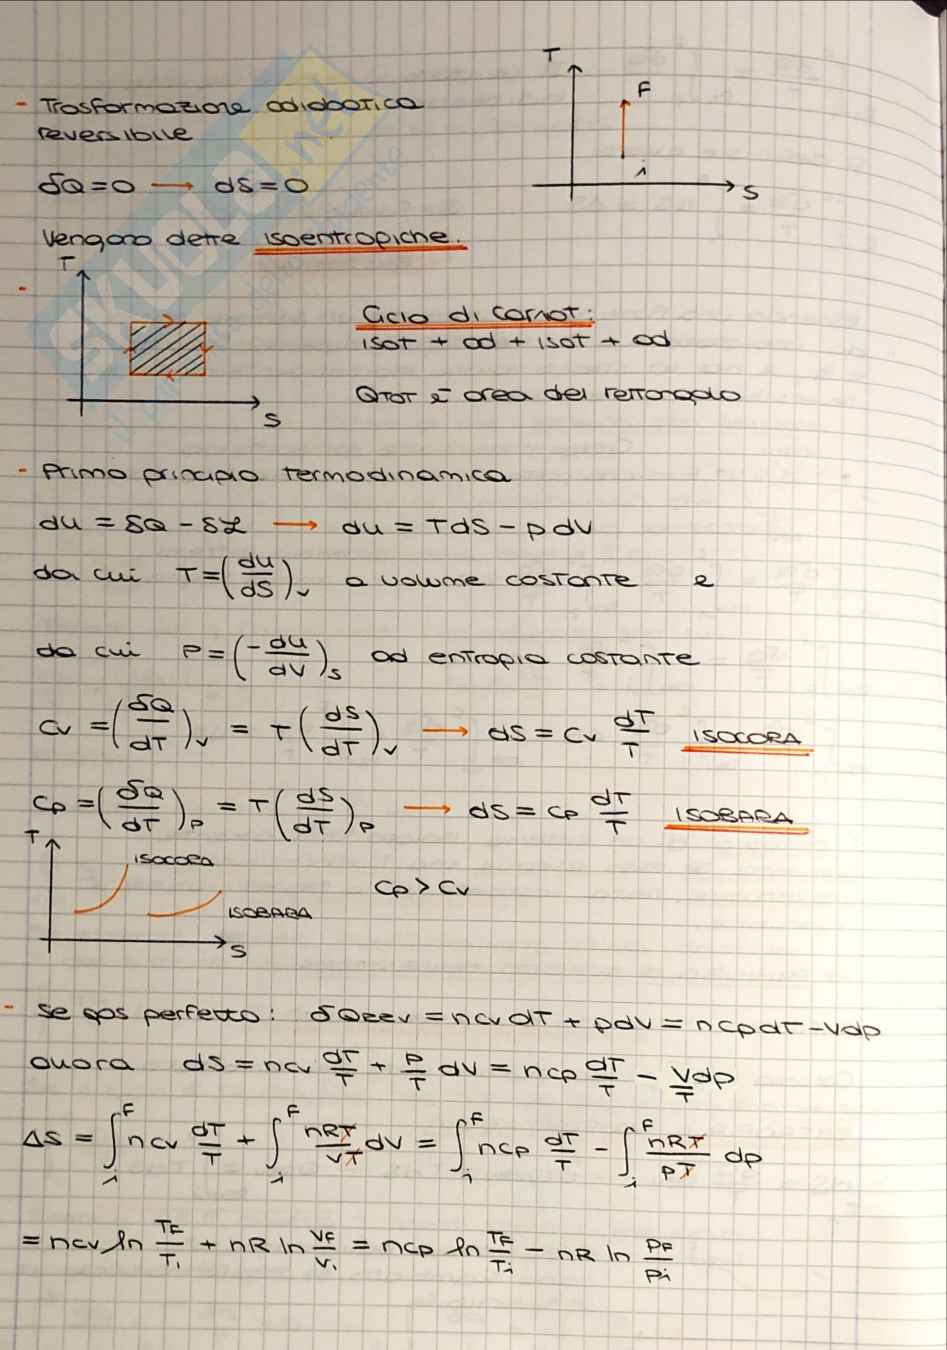 T
F
- Trasformazione adiabatica
reversibile
i
S
δQ = 0 → dS = 0
Vengono dette isoentropiche.
T
-
Ciclo di Carnot:
isot + ad + isot + ad
QTOT è area del rettangolo
S
- Primo principio termodinamica
du = δQ - δL → du = TdS - pdV
da cui T = (du/dS)v a volume costante e
da cui P = (-du/dV)s ad entropia costante
Cv = (δQ/dT)v = T (dS/dT)v → dS = Cv dT/T ISOCORA
Cp = (δQ/dT)p = T (dS/dT)p → dS = Cp dT/T ISOBARA
T
ISOCORA
Cp > Cv
ISOBARA
S
- se gas perfetto: δQrev = ncvdT + pdV = ncpdT - Vdp
allora dS = ncv dT/T + P/T dV = ncp dT/T - V/T dp
ΔS = ∫iF ncv dT/T + ∫iF nRT/VT dV = ∫iF ncp dT/T - ∫iF nRT/pT dp
= ncv ln TF/Ti + nR ln VF/Vi = ncp ln TF/Ti - nR ln PF/Pi
SKUOLA.net